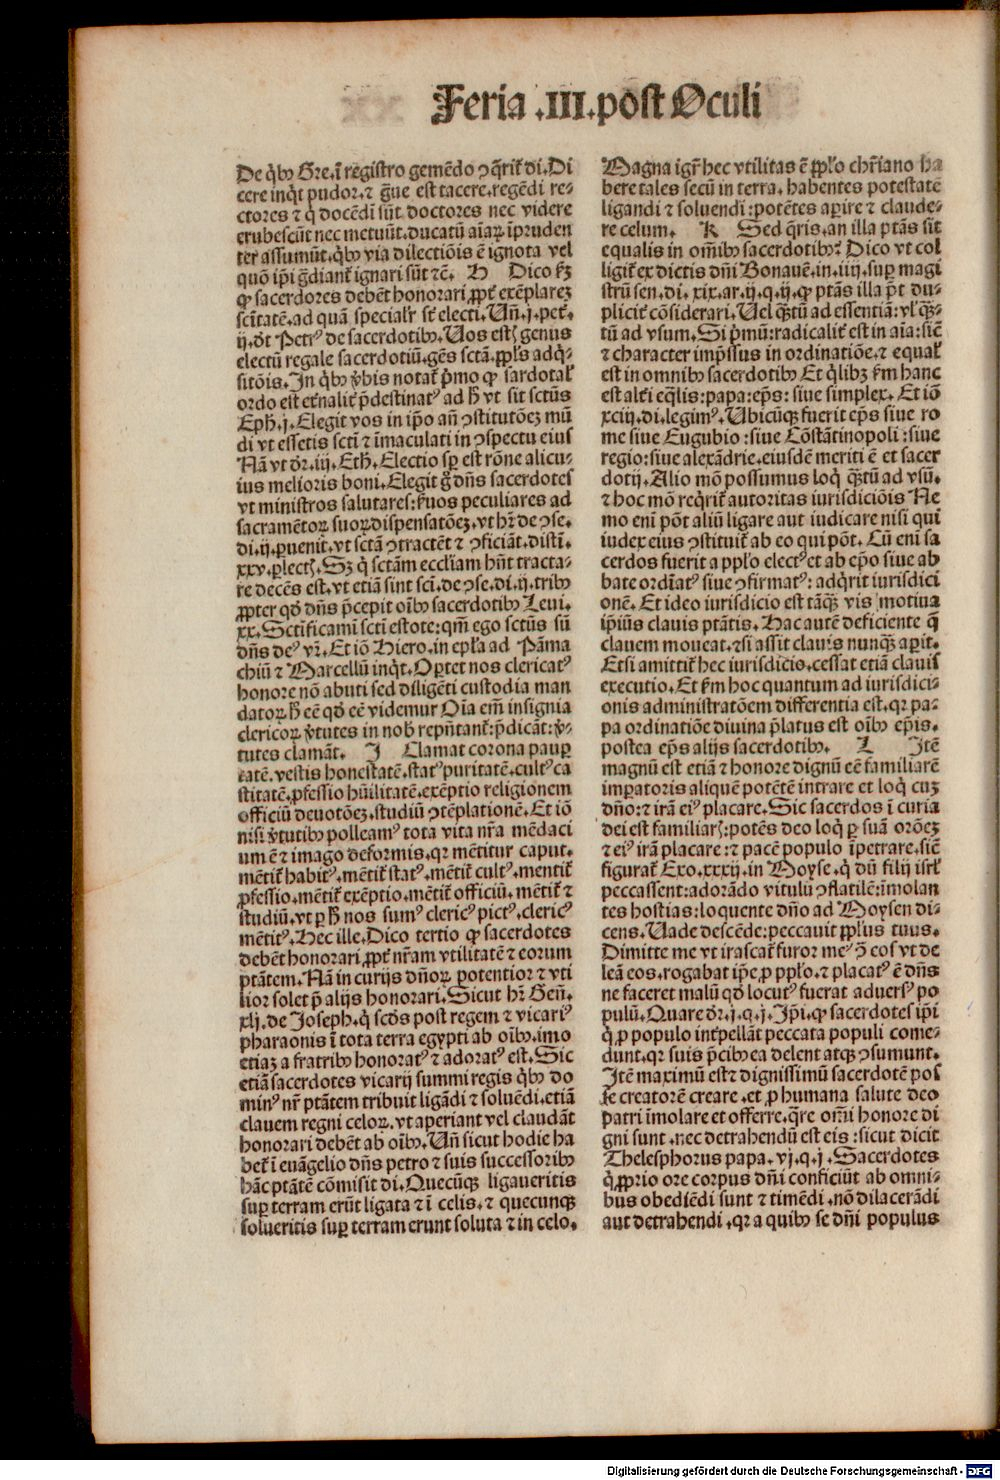 Feria .III. post Oculi
De q̇bꝫ Gre. ī registro gemēdo ↄq̄rit᷑ di. Di
cere inq̇t pudor. ⁊ ḡue est tacere. regēdi re⸗
ctores ⁊ q̇ docēdi sūt doctores nec videre
erubescūt nec metuūt. ducatū aīaꝝ īpruden
ter assumūt. q̇bꝫ via dilectiōis ē ignota vel
quō ip̄i ḡdiant᷑ ignari sūt ⁊c̄. H Dico ẜꝫ
ꝙ sacerdores debēt honorari, ꝓpt᷑ exēplarez
sc̄itatē. ad quā specialr̄ st᷑ electi. Uñ. j. pet᷑.
ij. d̄t Petrꝰ de sacerdotibꝫ. Uos estꝭ genus
electū regale sacerdotiū. gēs sctā. ꝓpl̄s adq̇⸗
sitōis. In q̇bꝫ v̄bis notat᷑ p̄mo ꝙ sardotal᷑
ordo est et᷑nalit᷑ p̄destinatꝰ ad ħ vt sit sctūs
Eph̄. j. Elegit vos in ip̄o añ ↄstitutōez mū
di vt essetis sctī ⁊ īmaculati in ↄspectu eius
Nā vt d᷑r. iij. Eth̄. Electio sp̄ est rōne alicu⸗
ius melioris boni. Elegit g̊ dn̄s sacerdotes
vt ministros salutares: ẜuos peculiares ad
sacramētoꝝ suoꝝ dispensatōez. vt hr̄ de ↄse.
di. ij. ꝑuenit. vt sctā ↄtractēt ⁊ ↄficiāt. distī.
xxv. ꝑlectꝭ. Sꝫ q̇ sctām eccliam hn̄t tracta⸗
re decēs est. vt etiā sint scī. de ↄse. di. ij. tribꝫ
ꝓpter qd̄ dn̄s p̄cepit oībꝫ sacerdotibꝫ Leui.
xx. Sctificamī sctī estote: qm̄ ego sctūs sū
dn̄s deꝰ vr̄. Et iō Hiero. in epl̄a ad Pāma
chiū ⁊ Marcellū inq̇t. Oꝑtet nos clericatꝰ
honore nō abuti sed diligēti custodia man
datoꝝ ħ eē qd̄ eē videmur Oīa em̄ insignia
clericoꝝ v̄tutes in nob̄ rep̄ntant᷑: p̄dicāt: v̄⸗
tutes clamāt. I Clamat corona pauꝑ
tatē. vestis honestatē. statꝰ puritatē. cultꝰ ca
stitatē. ꝓfessio hūilitatē. exēptio religionem
officiū deuotōez. studiū ↄtēplationē. Et iō
nisi v̄tutibꝫ polleamꝰ tota vita nr̄a mēdaci
um ē ⁊ imago deformis. qꝛ mētitur caput.
mētit᷑ habitꝰ. mētit᷑ statꝰ. mētit᷑ cultꝰ. mentit᷑
ꝓfessio. mētit᷑ exēptio. mētit᷑ officiū. mētit᷑ ⁊
studiū. vt ꝑ ħ nos sumꝰ clericꝰ pictꝰ. clericꝰ
mētitꝰ. Hec ille. Dico tertio ꝙ sacerdotes
debēt honorari, ꝓpt᷑ nr̄am vtilitatē ⁊ eorum
ptātem. Nā in curijs dn̄oꝝ potentior ⁊ vti
lior solet p̄ alijs honorari. Sicut hr̄ Geñ.
xlj. de Joseph. q̇ scd̄s post regem ⁊ vicariꝰ
pharaonis ī tota terra egypti ab oībꝫ. imo
etiaz a fratribꝫ honoratꝰ ⁊ adoratꝰ est. Sic
etiā sacerdotes vicarij summi regis q̇bꝫ do
minꝰ nr̄ ptātem tribuit ligādi ⁊ soluēdi. etiā
clauem regni celoꝝ. vt aperiant vel claudāt
honorari debēt ab oībꝫ. Uñ sicut hodie ha
bet᷑ ī euāgelio dn̄s petro ⁊ suis successoribꝫ
hāc ptātē cōmisit di. Quecūqꝫ ligaueritis
suꝑ terram erūt ligata ⁊ ī celis. ⁊ quecunqꝫ
solueritis suꝑ terram erunt soluta ⁊ in celo.
Magna igr̄ hec vtilitas ē ꝓpl̄o chr̄iano ha
bere tales secū in terra. habentes potestatē
ligandi ⁊ soluendi: potētes aꝑire ⁊ claude⸗
re celum. K Sed q̄ris. an illa ptās sit
equalis in om̄ibꝫ sacerdotibꝫ? Dico vt col
ligit᷑ ex dictis dn̄i Bonauē. in. iiij. suꝑ magi
strū sen. di. xix. ar. ij. q. ij. ꝙ ptās illa p̄t du⸗
plicit᷑ cōsiderari. Uel qꝫtū ad essentiā: vl̓ qꝫ⸗
tū ad vsum. Si p̄mū: radicalit᷑ est in aīa: sic̄
⁊ character imp̄ssus in ordinatiōe. ⁊ equal᷑
est in omnibꝫ sacerdotibꝫ Et q̇libꝫ ẜm hanc
est alt᷑i eq̄lis: papa: ep̄s: siue simplex. Et iō
xciij. di. legimꝰ. Ubicūqꝫ fuerit ep̄s siue ro
me siue Eugubio: siue Cōstātinopoli: siue
regio: siue alexādrie. eiusdē meriti ē et sacer
dotij. Alio mō possumus loq̇ qꝫtū ad vsū.
⁊ hoc mō req̇rit᷑ autoritas iurisdiciōis Ne
mo enī pōt aliū ligare aut iudicare nisi qui
iudex eius ↄstituit᷑ ab eo qui pōt. Cū enī sa
cerdos fuerit a ppl̄o electꝰ et ab ep̄o siue ab
bate ordīatꝰ siue ↄfirmatꝰ: adq̇rit iurisdici
onē. Et ideo iurisdicio est tāqꝫ vis motiua
ip̄ius clauis ptātis. Hac autē deficiente q̄
clauem moueat. ⁊si assit clauis nunqꝫ aꝑit.
Etsi amittit᷑ hec iurisdicis. cessat etiā clauis
executio. Et ẜm hoc quantum ad iurisdici⸗
onis administratōem differentia est. qꝛ pa⸗
pa ordinatiōe diuina p̄latus est oībꝫ ep̄is.
postea ep̄s alijs sacerdotibꝫ. L Itē
magnū est etiā ⁊ honore dignū eē familiarē
imꝑatoris aliquē potētē intrare et loq̇ cuz
dn̄o: ⁊ irā eiꝰ placare. Sic sacerdos ī curia
dei est familiarꝭ: potēs deo loq̇ ꝑ suā orōez
⁊ eiꝰ irā placare: ⁊ pacē populo īpetrare. sic̄
figurat᷑ Exo. xxxij. in Moyse. q̇ dū filij isrl̓
peccassent: adorādo vitulū ↄflatilē: īmolan
tes hostias: loquente dn̄o ad Moysen di⸗
cens. Uade descēde: peccauit ꝓpl̄us tuus.
Dimitte me vt irascat᷑ furor meꝰ ↄ̄ eos vt de
leā eos. rogabat ip̄e ꝓ ppl̄o. ⁊ placatꝰ ē dn̄s
ne faceret malū qd̄ locutꝰ fuerat aduersꝰ po
pulū. Quare d᷑r. j. q. j. Ip̄i. ꝙ sacerdotes ip̄i
q̇ ꝓ populo int᷑pellāt peccata populi come⸗
dunt. qꝛ suis p̄cibꝫ ea delent atqꝫ ↄsumunt.
Itē maximū est⁊ dignissimū sacerdotē pos
se creatorē creare. et ꝓ humana salute deo
patri īmolare et offerre. q̄re om̄i honore di
gni sunt. nec detrahendū est eis: sicut dicit
Thelesphorus papa. vj. q. j. Sacerdotes
q̇ ꝓprio ore corpus dn̄i conficiūt ab omni⸗
bus obediēdi sunt ⁊ timēdi. nō dilacerādi
aut detrahendi. qꝛ a quibꝫ se dn̄i populus
Digitalisierung gefördert durch die Deutsche Forschungsgemeinschaft - DFG